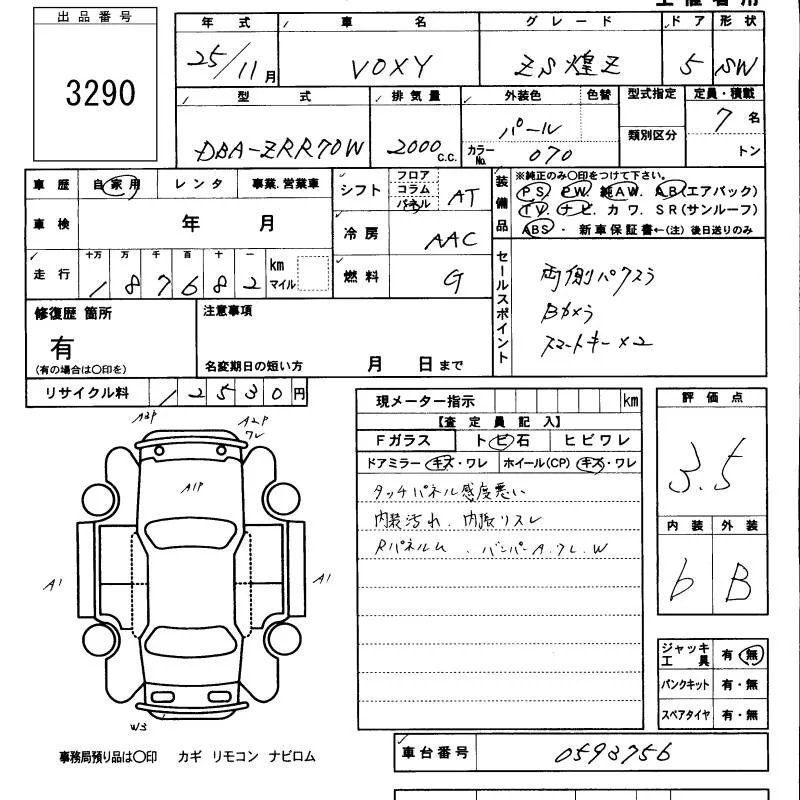 出品番号
3290
年式 車名 グレード ドア 形状
25/11月 VOXY ZS煌Z 5 SW
型式 排気量 外装色 色替 型式指定 定員・積載
DBA-ZRR70W 2000c.c. パール 類別区分 7名
カラーNo. 070 トン
車歴 自家用 レンタ 事業.営業車
車検 年 月
走行 十万 万 千 百 十 一 km マイル
187682
シフト フロア コラム パネル AT
冷房 AAC
燃料 G
装備品 ※純正のみ〇印をつけて下さい。
PS. PW. 純AW. AB(エアバック)
TV. ナビ. カワ. SR(サンルーフ)
ABS・新車保証書←(注) 後日送りのみ
セールスポイント
両側パワスラ
Bカメラ
スマートキー×2
修復歴 箇所
有
(有の場合は〇印を)
注意事項
名変期日の短い方 月 日まで
リサイクル料 12530円
現メーター指示 km
【査定員記入】
Fガラス トビ石 ヒビワレ
ドアミラー キズ・ワレ ホイール(CP) キズ・ワレ
タッチパネル感度悪い
内装汚れ. 内張リスレ
Rパネルム. バンパーA.ワレ.W
評価点
3.5
内装 外装
b B
A2P
A2P
ワレ
A1P
A1
A1
W3
ジャッキ工具 有・無
パンクキット 有・無
スペアタイヤ 有・無
事務局預り品は〇印 カギ リモコン ナビロム
車台番号 0593756